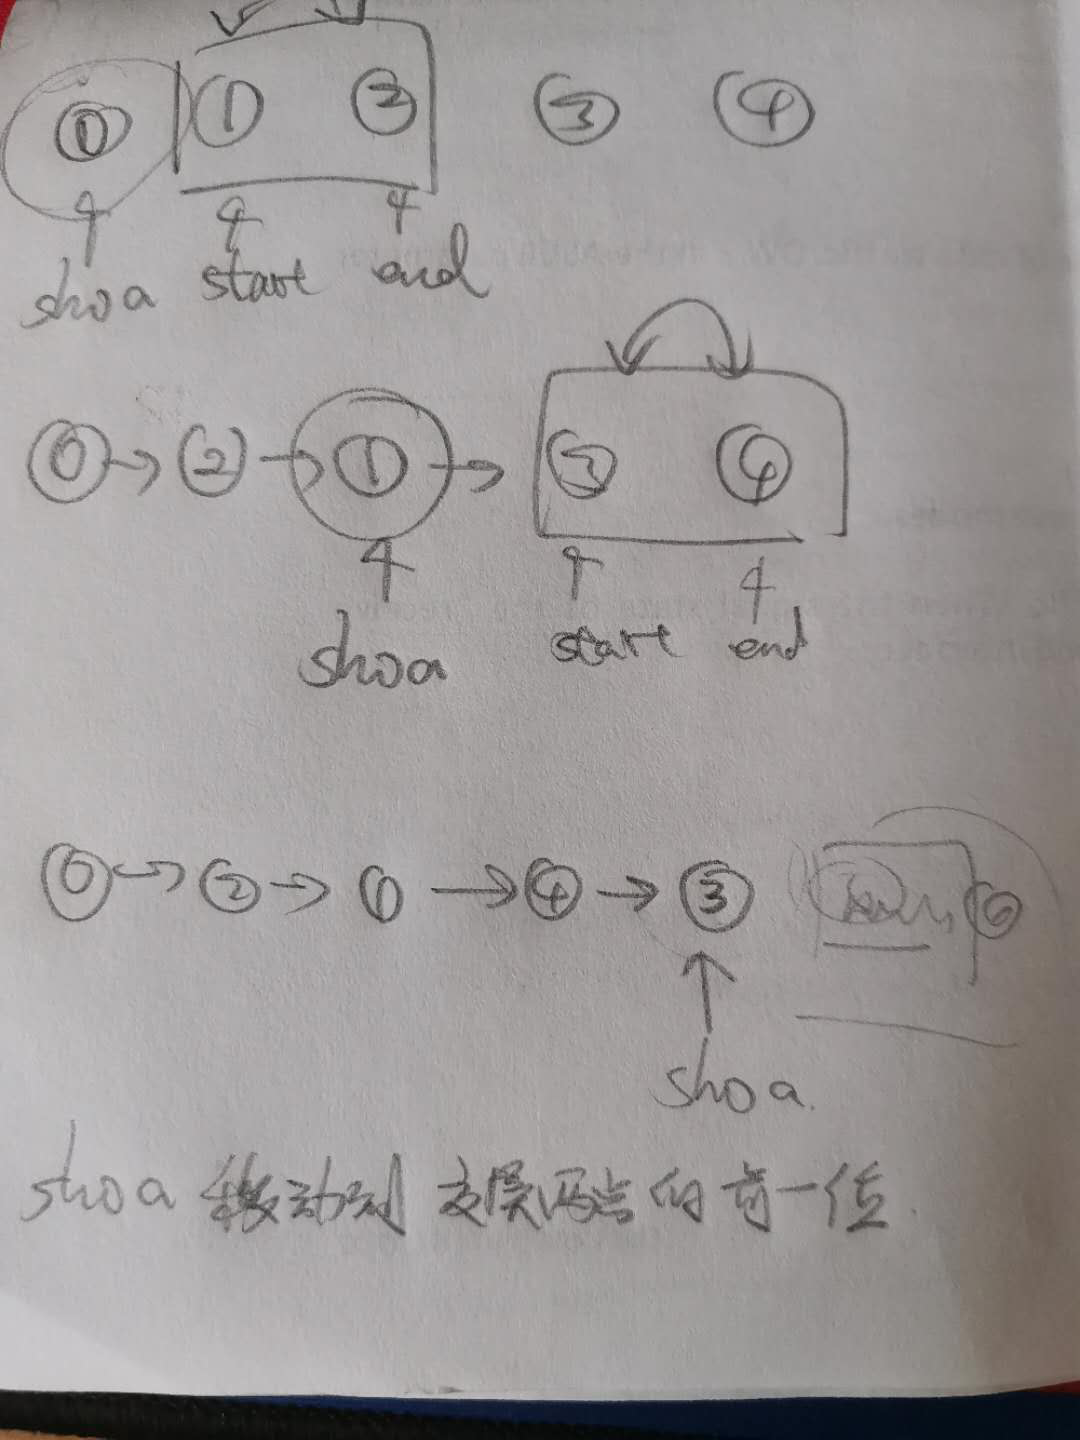 0 1 2 3 4
shoa start end
0 → 2 → 1 → 3 4
shoa start end
0 → 2 → 1 → 4 → 3
shoa
shoa 移动到 交换两点的前一位.